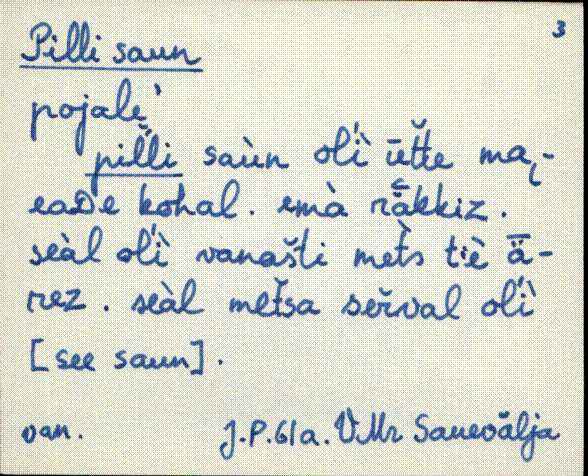 3
Pilli saun
pojale̮'
pil̆li saùn oľì ūt̆te ma̮i-
eaDe kohal. emà räkkiz.
seàl oľì vanašti met̀s tiè ǟ-
rez. seàl met̆sa seřval oľì
[see saun].
van. J.P. 61a. VMr Sauevälja